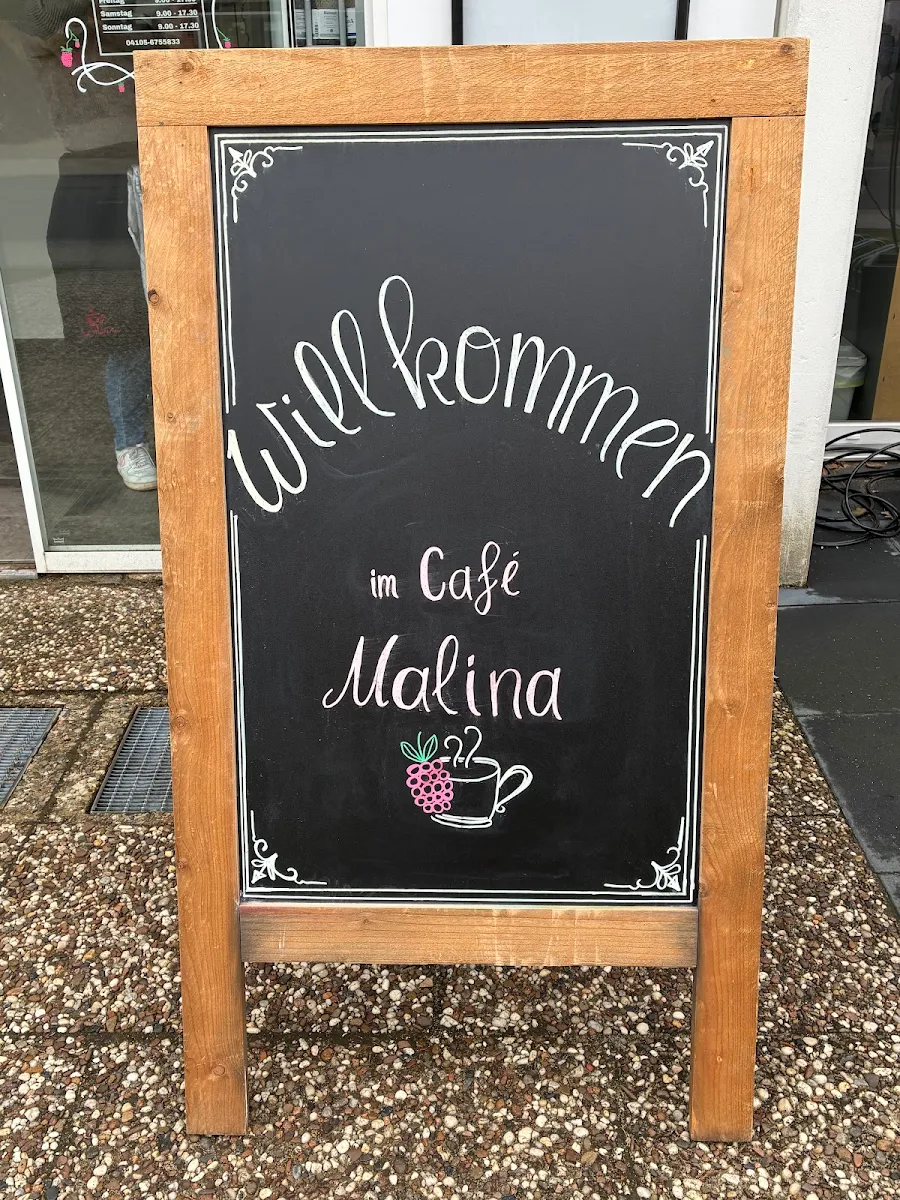 Freitag 9.00 - 17.30
Samstag 9.00 - 17.30
Sonntag 9.00 - 17.30
04105-6755833
Willkommen
im Café
Malina